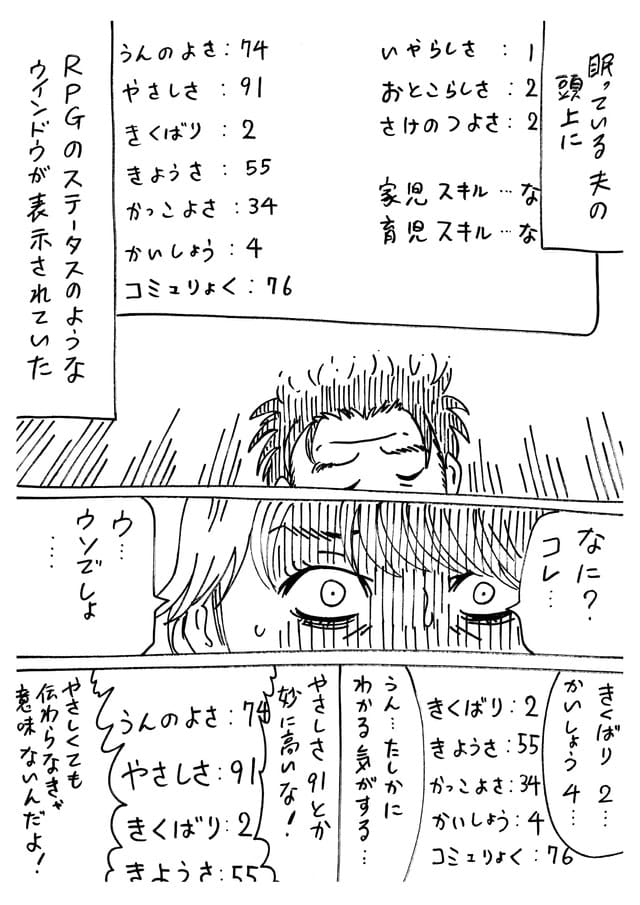 眠っている夫の
頭上に
いやらしさ : 1
おとこらしさ : 2
さけのつよさ : 2
家児スキル … な
育児スキル … な
うんのよさ : 74
やさしさ : 91
きくばり : 2
きようさ : 55
かっこよさ : 34
かいしょう : 4
コミュりょく : 76
RPGのステータスのような
ウインドウが表示されていた
なに?
コレ…
ウ…
ウソでしょ
……
きくばり 2…
かいしょう 4…
きくばり : 2
きようさ : 55
かっこよさ : 34
かいしょう : 4
コミュりょく : 76
うん…たしかに
わかる気がする…
やさしさ 91とか
妙に高いな!
うんのよさ : 74
やさしさ : 91
きくばり : 2
きようさ : 55
やさしくても
伝わらなきゃ
意味ないんだよ!